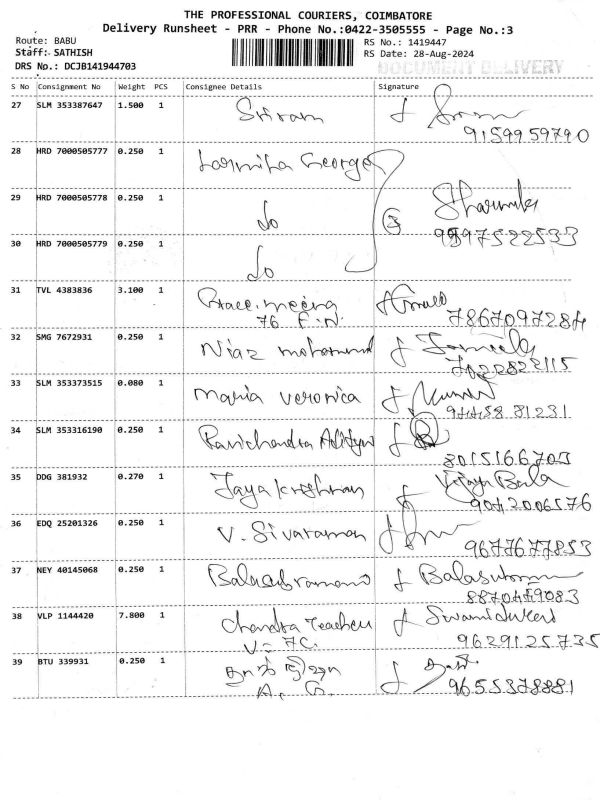 THE PROFESSIONAL COURIERS, COIMBATORE
Delivery Runsheet - PRR - Phone No.:0422-3505555 - Page No.:3
Route: BABU RS No.: 1419447
Staff: SATHISH RS Date: 28-Aug-2024
DRS No.: DCJB141944703 DOCUMENT DELIVERY
S No Consignment No Weight PCS Consignee Details Signature
27 SLM 353387647 1.500 1 Sriram
9159959790
28 HRD 7000505777 0.250 1 George
29 HRD 7000505778 0.250 1 do 3
30 HRD 7000505779 0.250 1 do 9597522533
31 TVL 4383836 3.100 1 Grace
76 7867097284
32 SMG 7672931 0.250 1 Niaz
7022822115
33 SLM 353373515 0.080 1 Maria Veronica
94458 81231
34 SLM 353316190 0.250 1 Ravichandra
8015166703
35 DDG 381932 0.270 1 Jayakrishnan Vijaya Bala
9042006576
36 EDQ 25201326 0.250 1 V. Sivaraman
9677677853
37 NEY 40145068 0.250 1 Balasubramani
8870449083
38 VLP 1144420 7.800 1 Chandra Teacher
V= 7C. 9629125735
39 BTU 339931 0.250 1
A. G. 9655378881